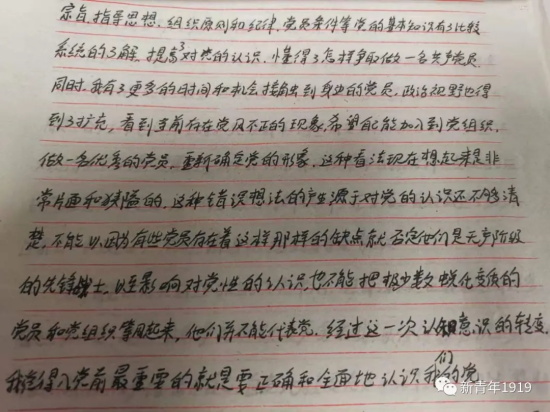 宗旨、指导思想、组织原则和纪律、党员条件等党的基本知识有了比较
系统的了解。提高了对党的认识，懂得了怎样争取做一名共产党员
同时，我有了更多的时间和机会接触到身边的党员，政治视野也得
到了扩充，看到当前存在党风不正的现象，希望自己能加入到党组织，
做一名优秀的党员，重新确定党的形象，这种看法现在想起来是非
常片面和狭隘的，这种错误想法的产生源于对党的认识还不够清
楚，不能以因为有些党员存在着这样那样的缺点就否定他们是无产阶级
的先锋战士，以至影响对党性的认识，也不能把极少数蜕化变质的
党员和党组织等同起来，他们并不能代表党。经过这一次认知意识的转变，
我觉得入党前最重要的就是要正确和全面地认识我们的党
新青年1919